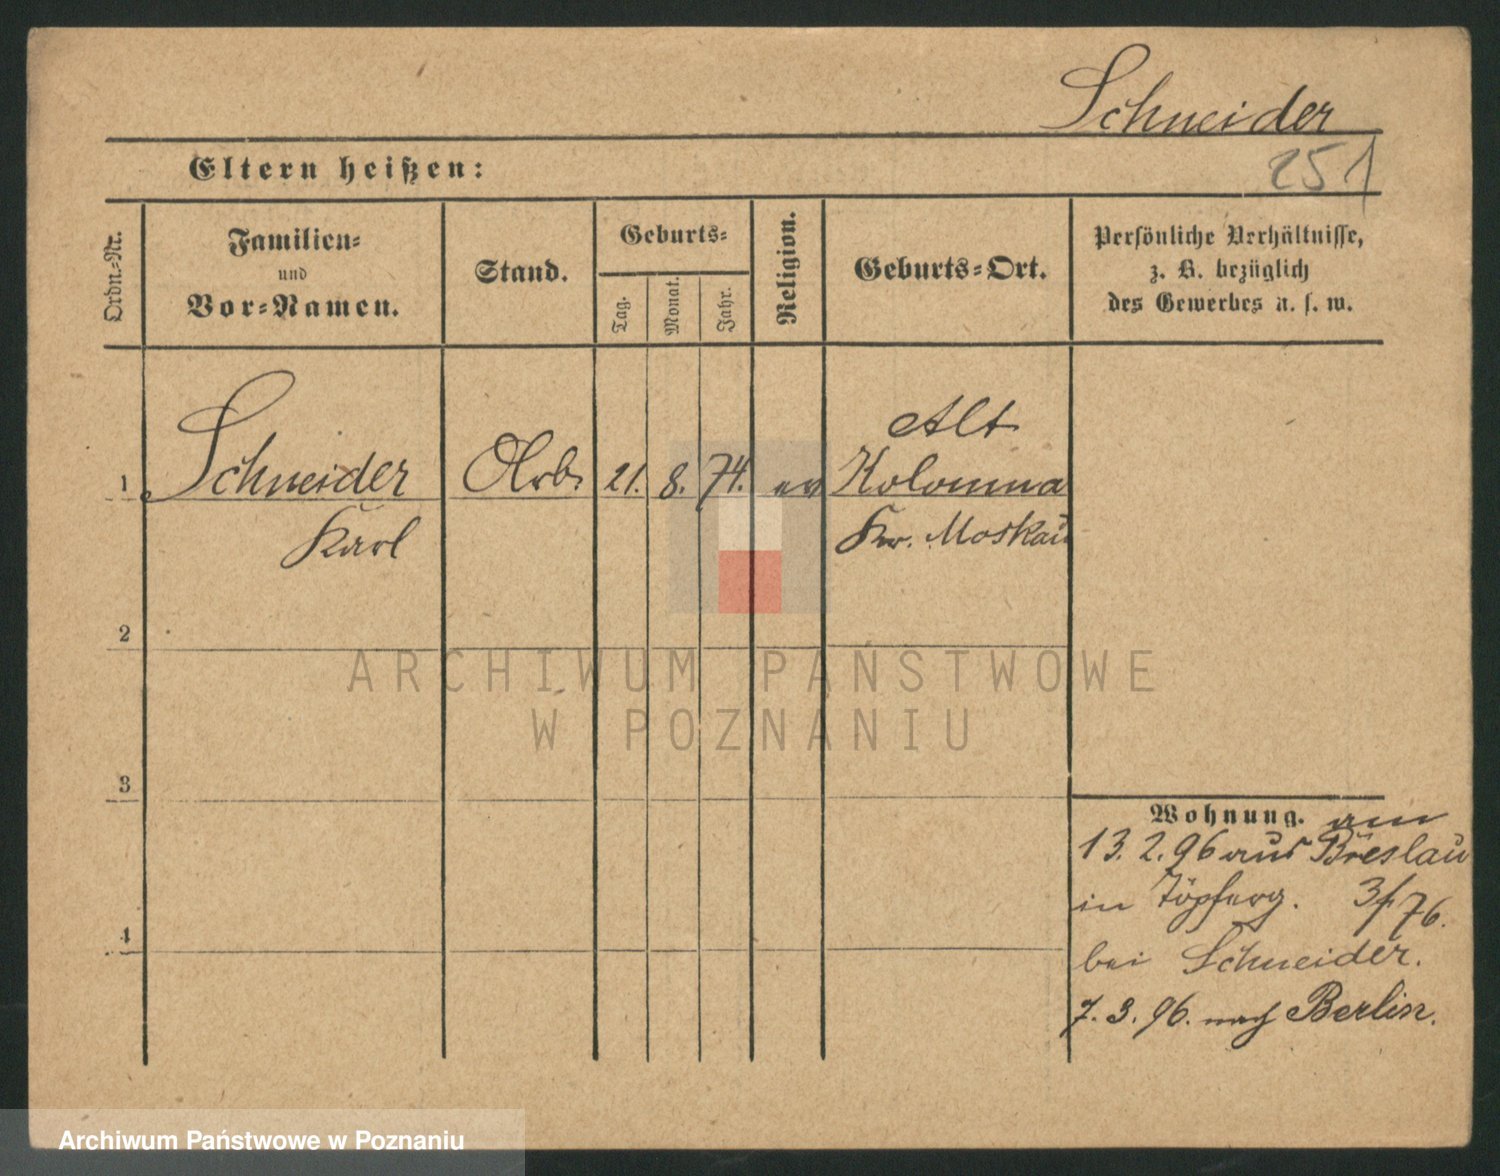 Schneider
251
Eltern heißen:
Ordn.-Nr.
Familien-
und
Vor-Namen.
Stand.
Geburts-
Tag.
Monat.
Jahr.
Religion.
Geburts-Ort.
Persönliche Verhältnisse,
z. B. bezüglich
des Gewerbes u. s. w.
Alt
1 Schneider Arb. 21. 8. 74. ev Kolomna
Karl Kr. Moskau
2
ARCHIWUM PAŃSTWOWE
W POZNANIU
3
Wohnung. am
13. 2. 96 aus Breslau
in Töpferg. 3/76.
4
bei Schneider.
7. 3. 96. nach Berlin.
Archiwum Państwowe w Poznaniu